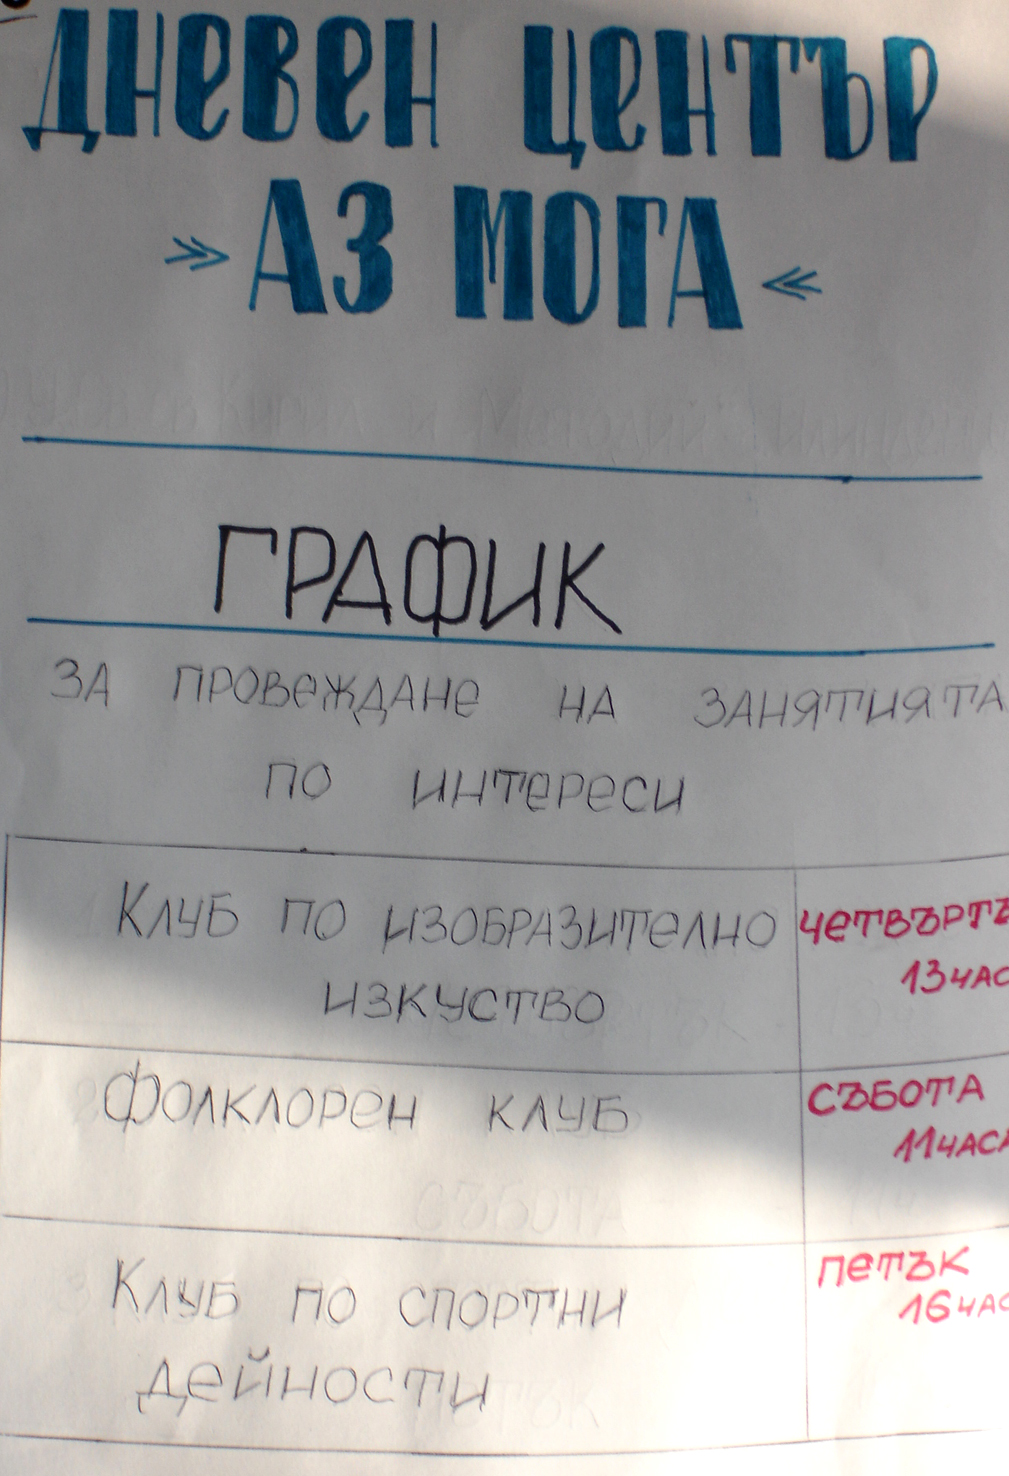 ДНЕВЕН ЦЕНТЪР
»АЗ МОГА«
ГРАФИК
ЗА ПРОВЕЖДАНЕ НА ЗАНЯТИЯТА
ПО ИНТЕРЕСИ
КЛУБ ПО ИЗОБРАЗИТЕЛНО
ИЗКУСТВО
ЧЕТВЪРТЪ
13 ЧАС
ФОЛКЛОРЕН КЛУБ
СЪБОТА
11 ЧАСА
КЛУБ ПО СПОРТНИ
ДЕЙНОСТИ
ПЕТЪК
16 ЧАС